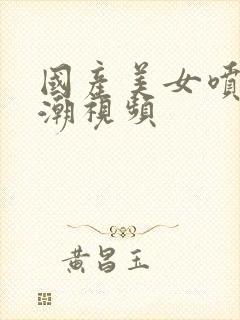 國產美女噴
潮視頻
黃昌玉